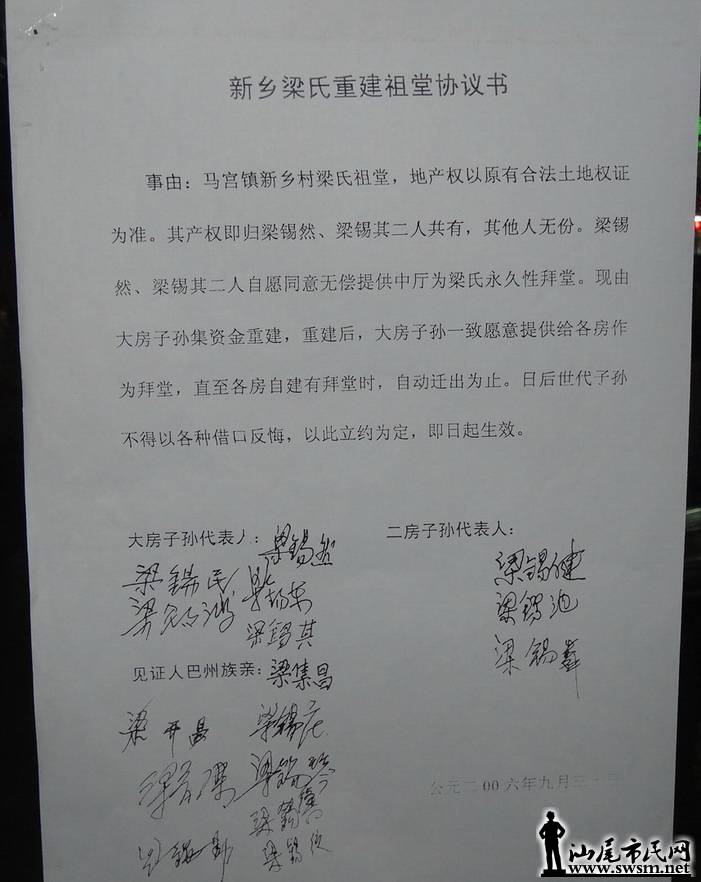 新乡梁氏重建祖堂协议书
事由：马宫镇新乡村梁氏祖堂，地产权以原有合法土地权证
为准。其产权即归梁锡然、梁锡其二人共有，其他人无份。梁锡
然、梁锡其二人自愿同意无偿提供中厅为梁氏永久性拜堂。现由
大房子孙集资金重建，重建后，大房子孙一致愿意提供给各房作
为拜堂，直至各房自建有拜堂时，自动迁出为止。日后世代子孙
不得以各种借口反悔，以此立约为定，即日起生效。
大房子孙代表人：梁锡然
二房子孙代表人：
梁锡民
梁锡健
梁锡池
梁锡其
梁锡
见证人巴州族亲：梁集昌
梁开昌
梁锡
公元二00六年九月三
汕尾市民网
www.swsm.net